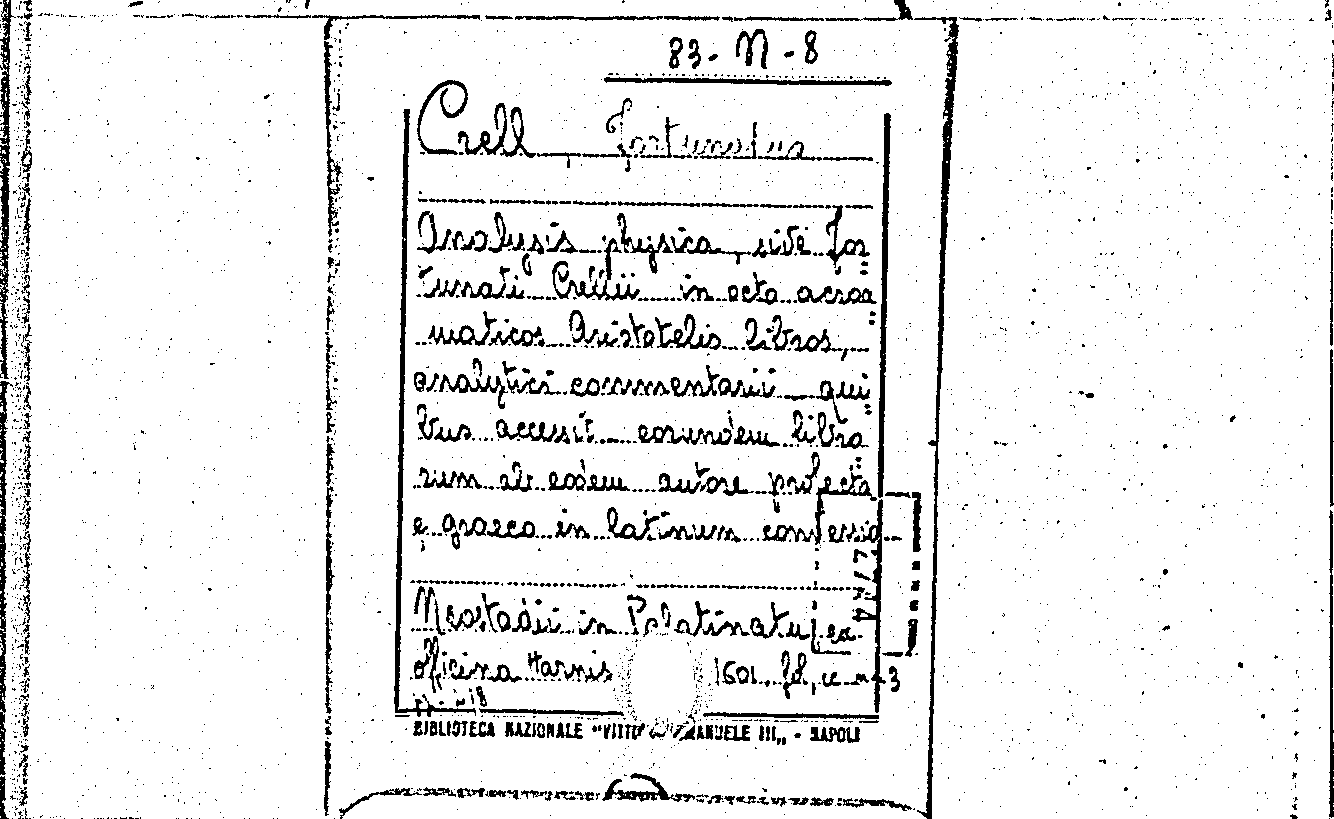 83-N-8
Crell, Fortunatus
Analysis physica, sive For=
tunati Crellii in octo acroa=
maticos Aristotelis libros,
analytici commentarii qui=
bus accessit eorundem libro=
rum ab eodem autore profecta
e graeco in latinum conversio
Neostadii in Palatinatu, ex
officina Harnis 1601.
BIBLIOTECA NAZIONALE "VITTO MANUELE III„ - NAPOLI